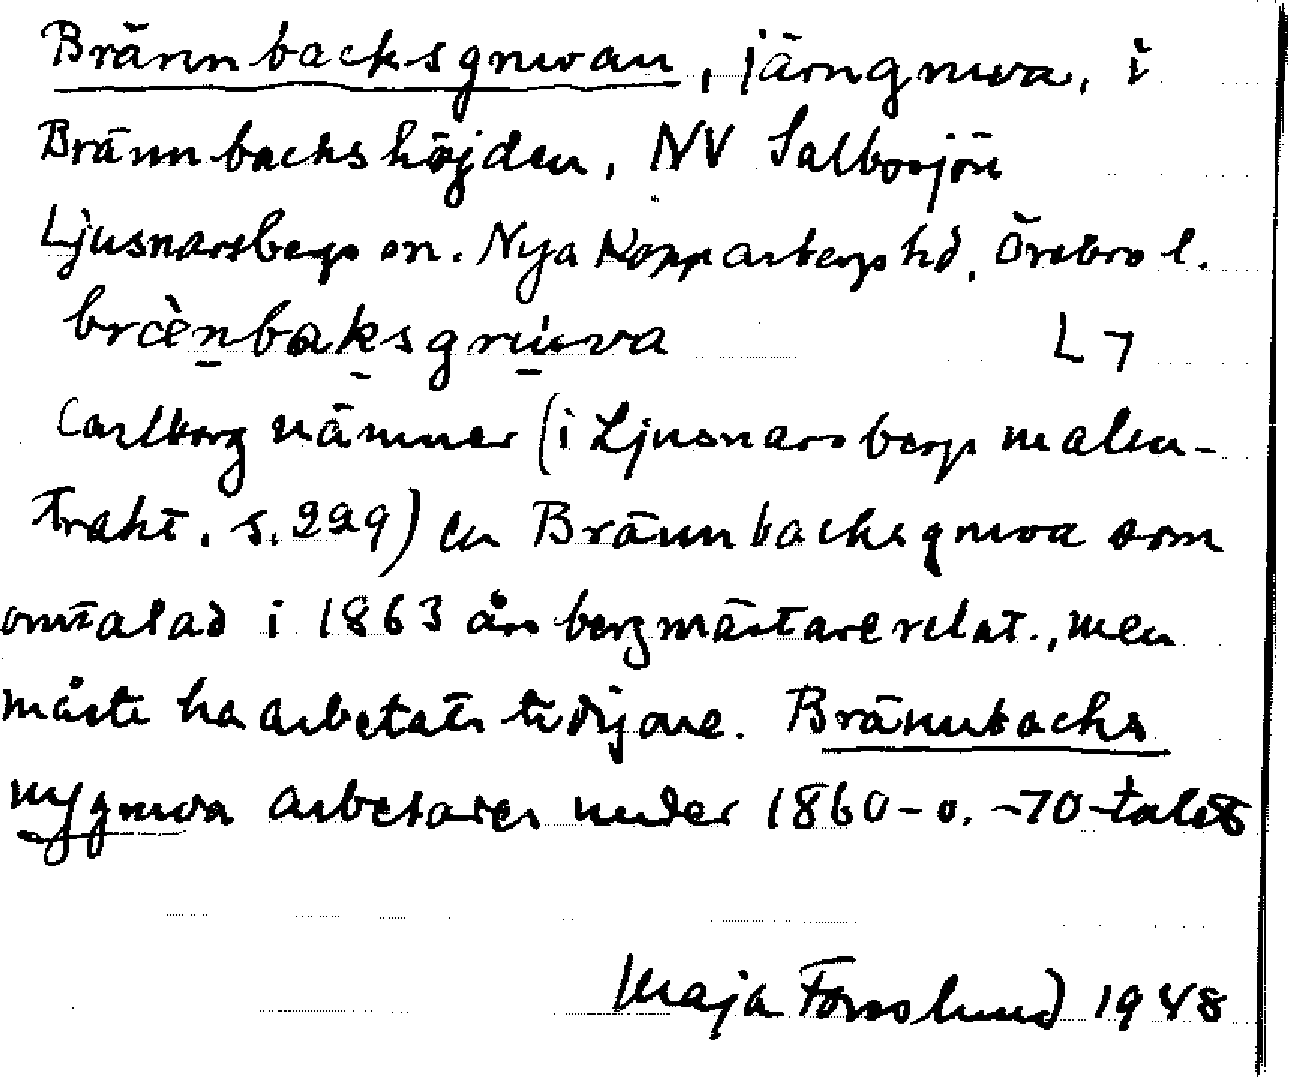 Brännbacksgruvan, järngruva, i
Brännbackshöjden, NV Salbosjön
Ljusnarsbergs sn. Nya Kopparbergs hd, Örebro l.
brènbaksgruva L 7
Carlborg nämner (i Ljusnarsbergs malm-
trakt. s. 229) en Brännbacksgruva som
omtalad i 1863 års bergmästarerelat., men
måste ha arbetats tidigare. Brännbacks
nygruva arbetades under 1860- o. -70-talet
Maja Forsslund 1948